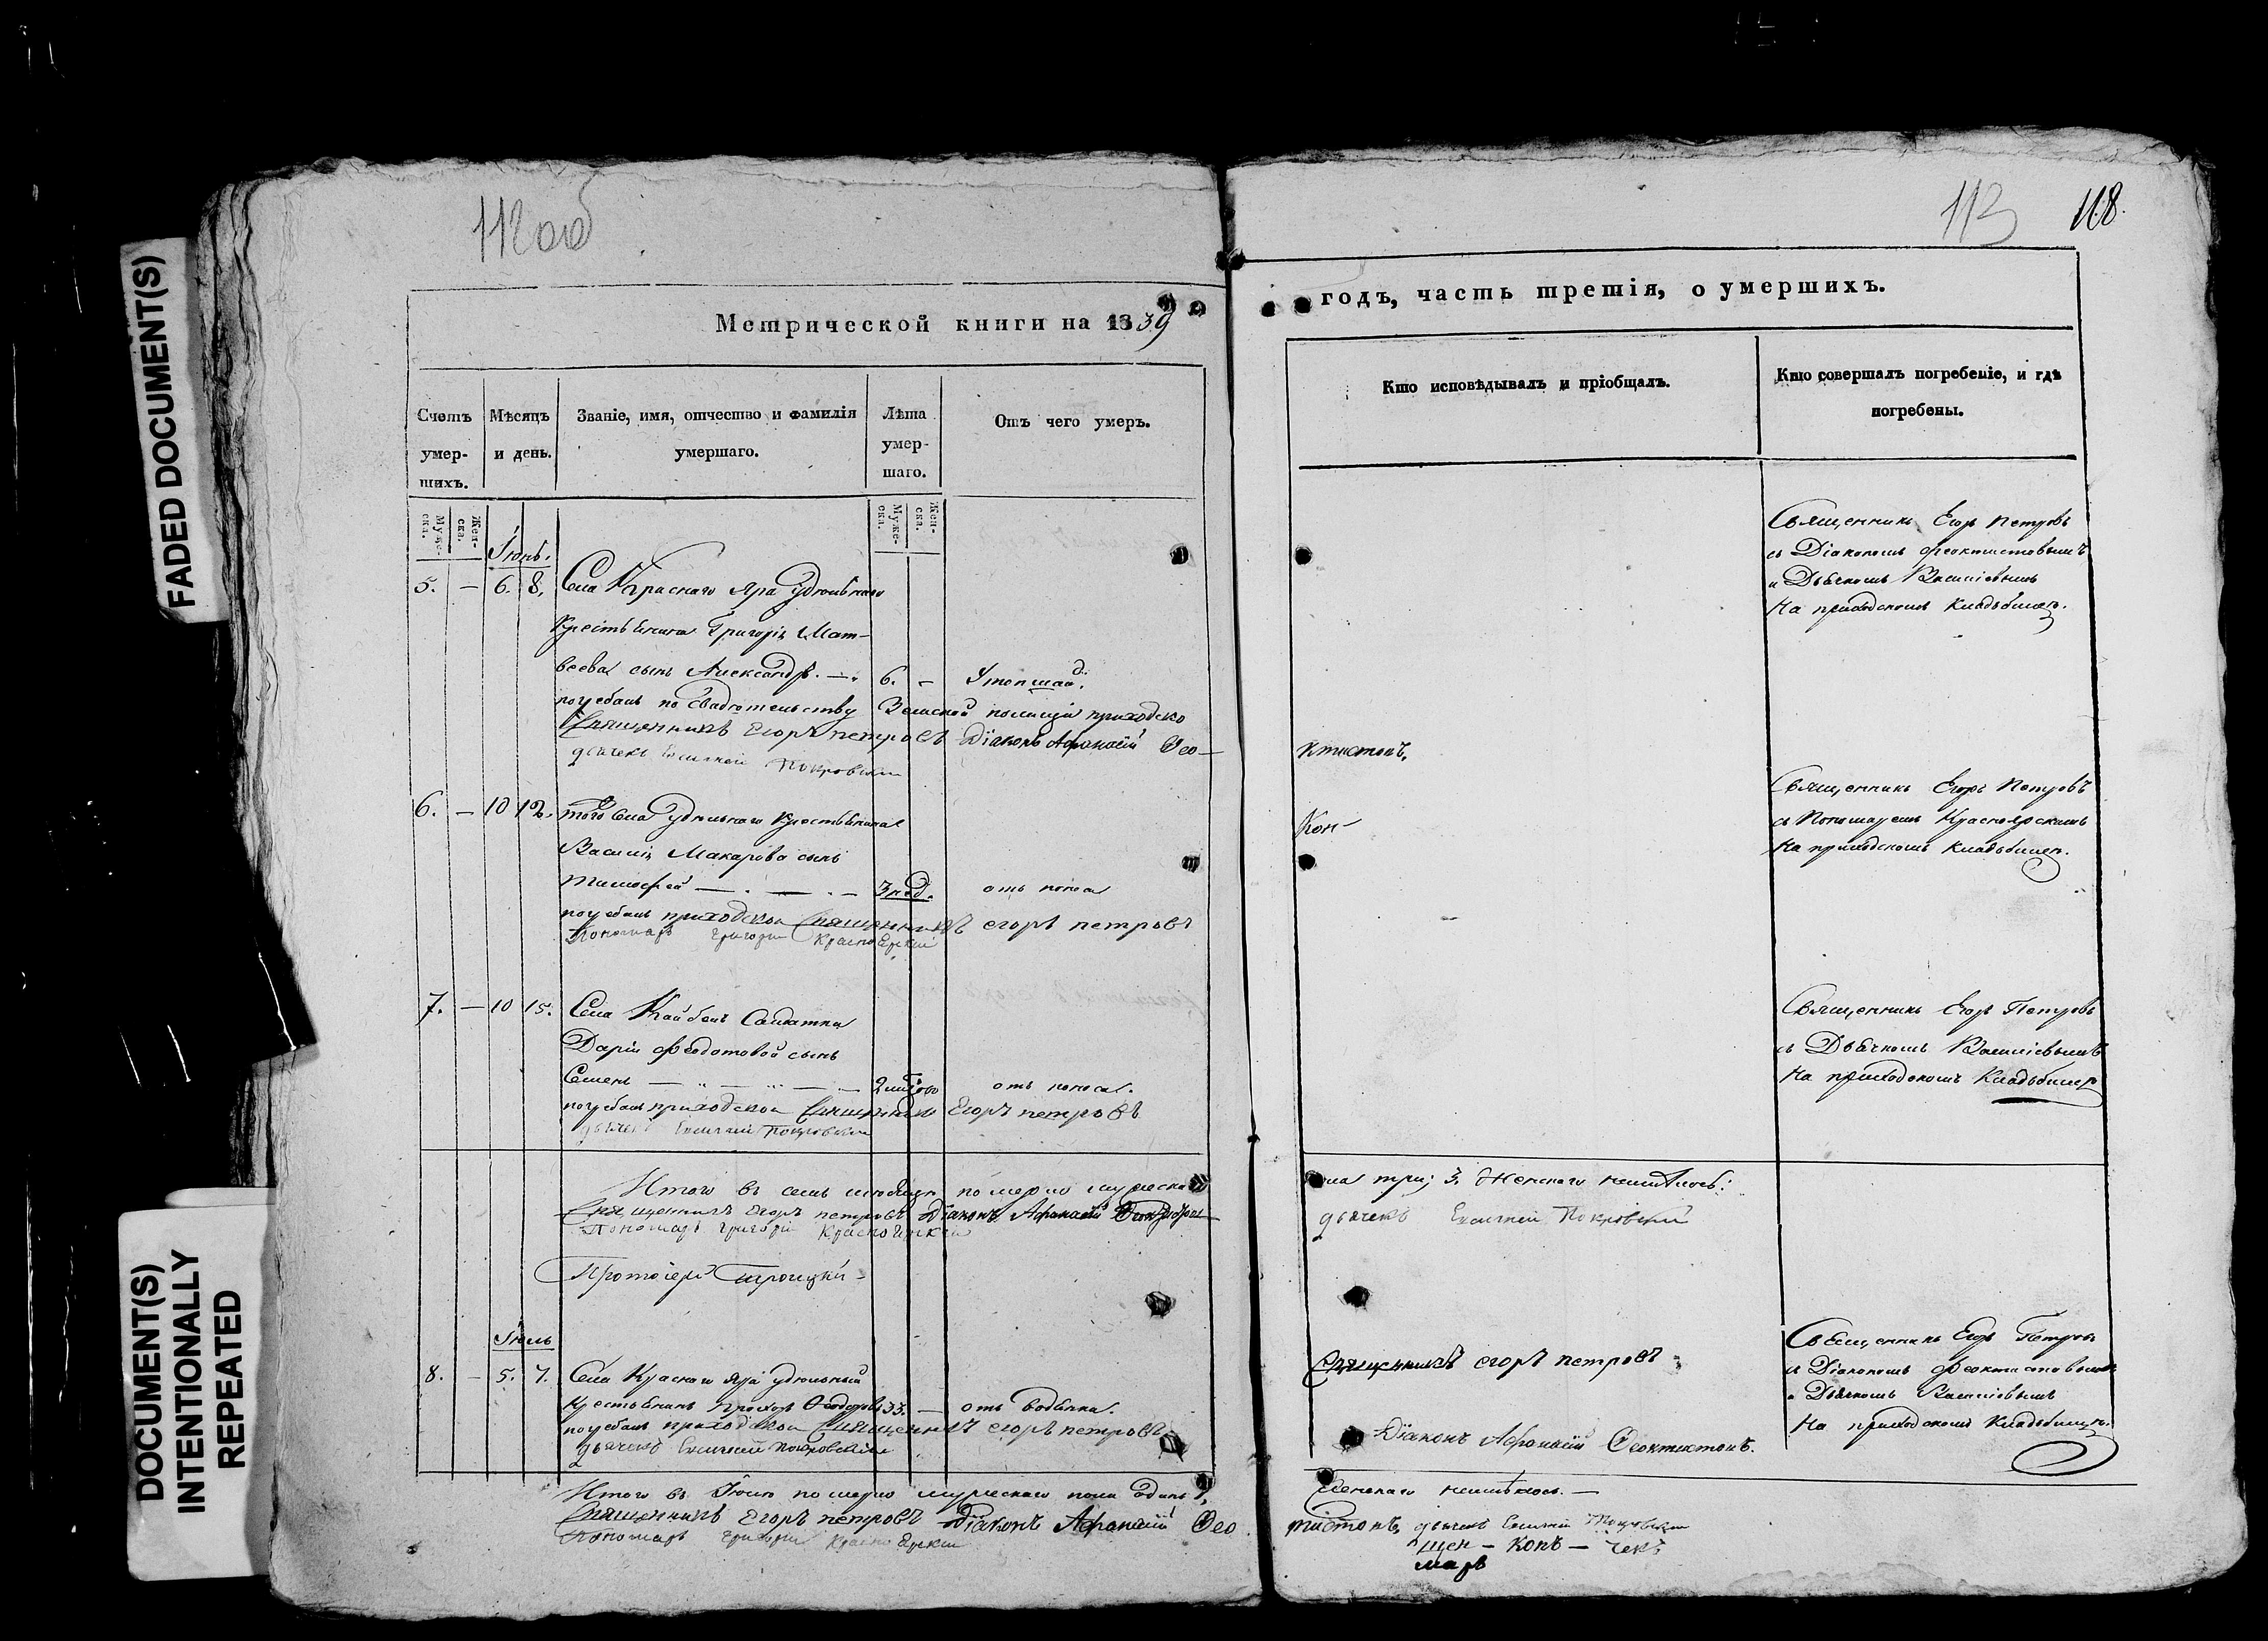 FADED DOCUMENT(S)
DOCUMENT(S)
INTENTIONALLY
REPEATED
112 об
Метрической книги на 1839
Счетъ умер-шихъ.
Мѣсяцъ и день.
Званіе, имя, отчество и фамилія умершаго.
Лѣта умер-шаго.
Отъ чего умеръ.
Муже-ска.
Жен-ска.
Муже-ска.
Жен-ска.
Іюнь.
5. — 6. 8. Села Краснаго Яра удѣльнаго
крестьянина Григорія Мат-
веева сынъ Александръ. — 6. —
погребалъ по свидѣтельству Земской полиціи приходско
Священникъ Егоръ петровъ Діаконъ Афанасій Ѳео-
дьячекъ Покровскій
6. — 10 12. того села удѣльнаго крестьянина
Василія Макарова сынъ
Тимофей — . — . — 3 нед. отъ поноса
погребалъ приходской Священникъ егоръ петровъ
Пономарь григорій КрасноЯрскій
7. — 10 15. Села Кайбелъ Солдатки
Даріи Ѳеодотовой сынъ
Семенъ — отъ поноса.
погребалъ приходской Священникъ Егоръ петровъ
дьячекъ Покровскій
Итого въ семъ мѣсяце померло мужеска
Священникъ Егоръ петровъ Діаконъ Афанасій
Пономарь григорій КрасноЯрскій
Протоіерей Троицкій
Іюль
8. — 5. 7. Села Краснаго Яра удѣльный
крестьянинъ Прохоръ Ѳеодоровъ 33. — отъ водянки.
погребалъ приходской Священникъ егоръ петровъ
дьячекъ Покровскій
Итого въ Іюлѣ померло мужескаго пола одинъ 1,
Священникъ Егоръ петровъ Діаконъ Афанасій Ѳео
Пономарь григорій КрасноЯрскій
113 118.
годъ, часть третія, о умершихъ.
Кто исповѣдывалъ и пріобщалъ.
Кто совершалъ погребеніе, и гдѣ
погребены.
Священникъ Егоръ Петровъ
съ Діакономъ Феоктистовымъ
и Дьячкомъ
На приходскомъ кладбищѣ.
ктистовъ,
Священникъ Егоръ Петровъ
съ Пономаремъ Красноярскимъ
На приходскомъ кладбищѣ.
Кон-
Священникъ Егоръ Петровъ
съ Дьячкомъ
На приходскомъ Кладбищѣ
пола три; 3. Женскаго неимѣлось:
дьячекъ Покровскій
Священникъ егоръ петровъ
Священникъ Егоръ Петровъ
съ Діакономъ Феоктистовымъ
и Дьячкомъ
На приходскомъ Кладбищѣ.
Діаконъ Афанасій Ѳеоктистовъ.
Женскаго неимѣлось. —
тистовъ, дьячекъ Покровскій
щен — конъ — чекъ
марь